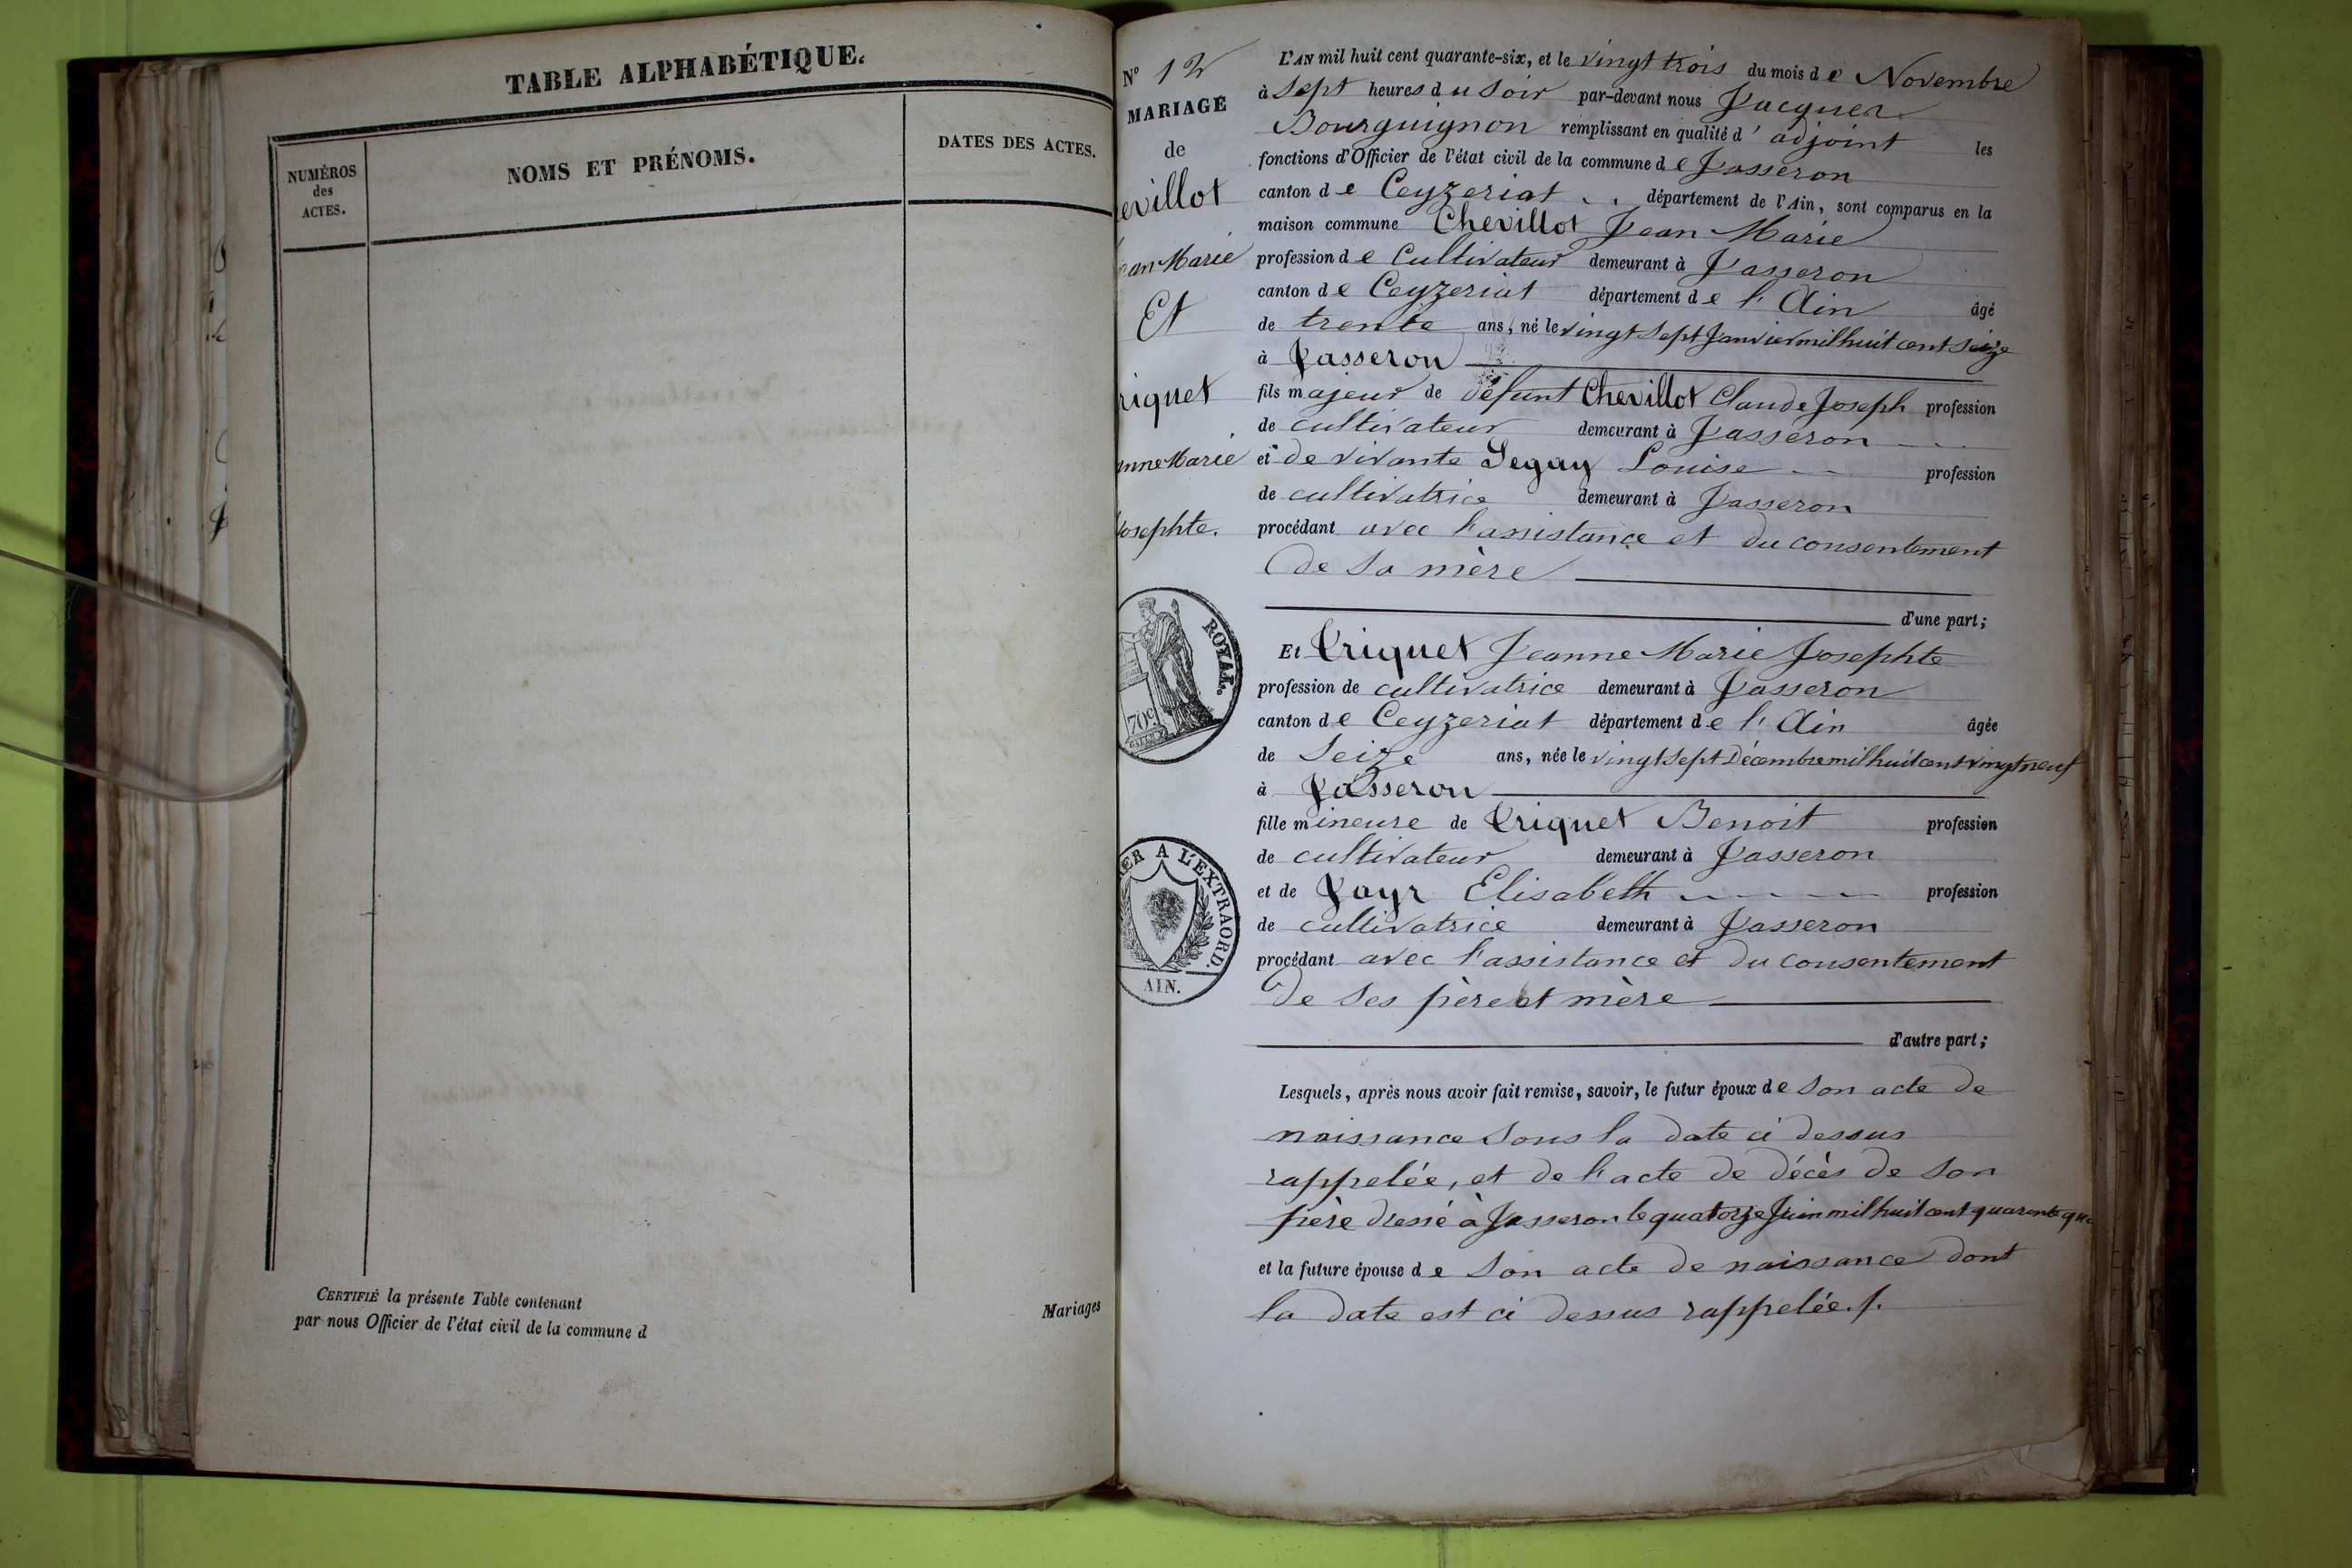 TABLE ALPHABÉTIQUE.
NUMÉROS
des
ACTES.
NOMS ET PRÉNOMS.
DATES DES ACTES.
CERTIFIÉ la présente Table contenant
par nous Officier de l'état civil de la commune d
Mariages
N° 12
MARIAGE
de
evillot
ean Marie
Et
riquet
anne Marie
Josephte.
ROYAL.
70c.
ER A L'EXTRAORD.
AIN.
L'AN mil huit cent quarante-six, et le vingt trois du mois de Novembre
à Sept heures du Soir par-devant nous Jacques
Bourguignon remplissant en qualité d'adjoint les
fonctions d'Officier de l'état civil de la commune de Jasseron
canton de Ceyzeriat département de l'Ain, sont comparus en la
maison commune Chevillot Jean Marie
profession de Cultivateur demeurant à Jasseron
canton de Ceyzeriat département de l'Ain âgé
de trente ans, né le vingt Sept Janvier mil huit cent Seize
à Jasseron
fils majeur de défunt Chevillot Claude Joseph profession
de cultivateur demeurant à Jasseron
et de vivante Segay Louise profession
de cultivatrice demeurant à Jasseron
procédant avec l'assistance et du consentement
de Sa mère
d'une part;
Et Criquet Jeanne Marie Josephte
profession de cultivatrice demeurant à Jasseron
canton de Ceyzeriat département de l'Ain âgée
de Seize ans, née le vingt Sept Décembre mil huit cent vingt neuf
à Jasseron
fille mineure de Criquet Benoit profession
de cultivateur demeurant à Jasseron
et de Jayr Elisabeth profession
de cultivatrice demeurant à Jasseron
procédant avec l'assistance et du consentement
de Ses père et mère
d'autre part;
Lesquels, après nous avoir fait remise, savoir, le futur époux de Son acte de
naissance Sous la date ci dessus
rappelée, et de l'acte de décès de Son
père dressé à Jasseron le quatorze Juin mil huit cent quarante qu
et la future épouse de Son acte de naissance dont
la date est ci dessus rappelée./.